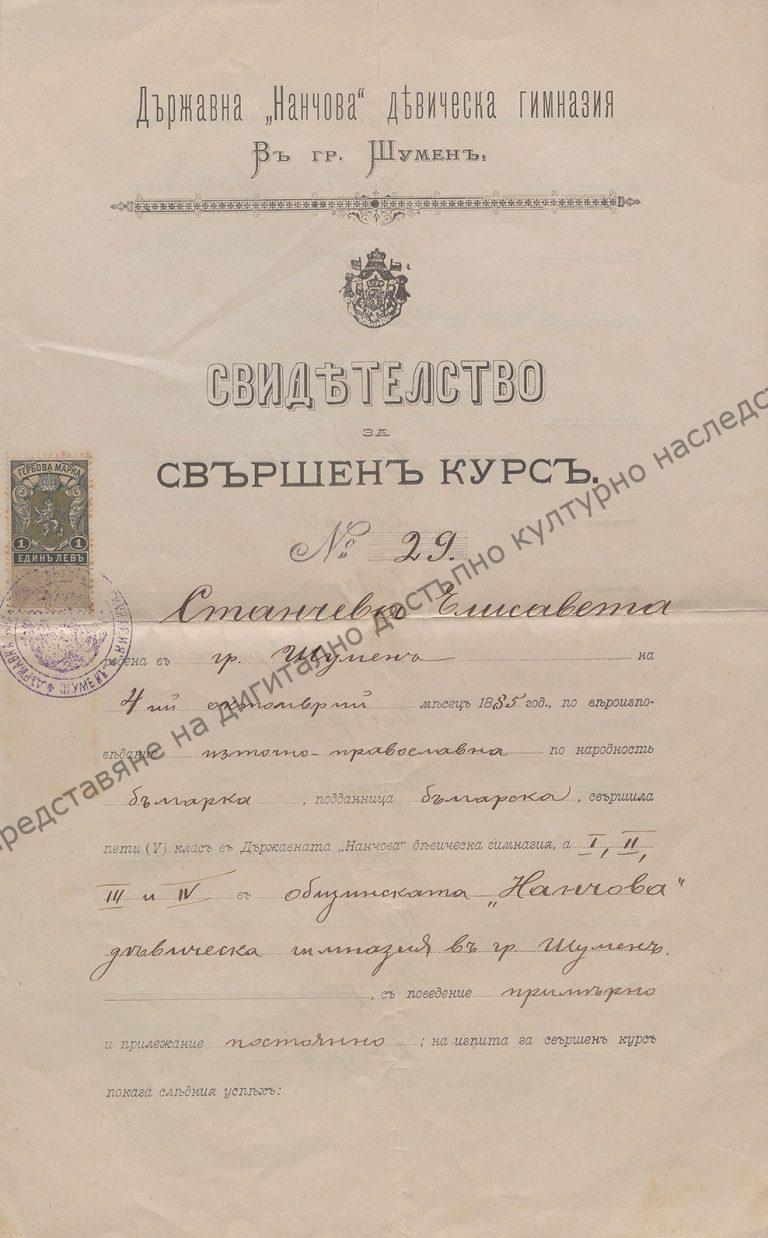 Държавна „Нанчова“ дѣвическа гимназия
Въ гр. Шуменъ.
СВИДѢТЕЛСТВО
ЗА
СВЪРШЕНЪ КУРСЪ.
№ 29.
ГЕРБОВА МАРКА
1 1
ЕДИНЪ ЛЕВЪ
Станчева Елисавета
родена въ гр. Шуменъ на
4ий октомврий мѣсецъ 1885 год., по вѣроизпо-
вѣдание източно-православна по народность
българка, подданница българска, свършила
пети (V) класъ въ Държавната „Нанчова“ дѣвическа гимназия, а I, II,
III и IV въ общинската „Нанчова“
дѣвическа гимназия въ гр. Шуменъ.
, съ поведение примѣрно
и прилежание постоянно; на изпита за свършенъ курсъ
показа слѣдния успѣхъ:
представяне на дигитално достъпно културно наследст